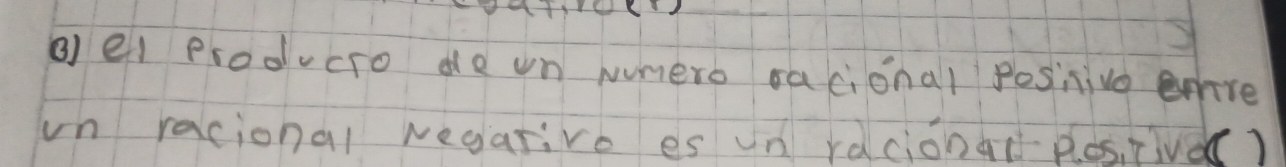 3) el producto de un numero racional positivo entre
un racional negativo es un racional positivo( )